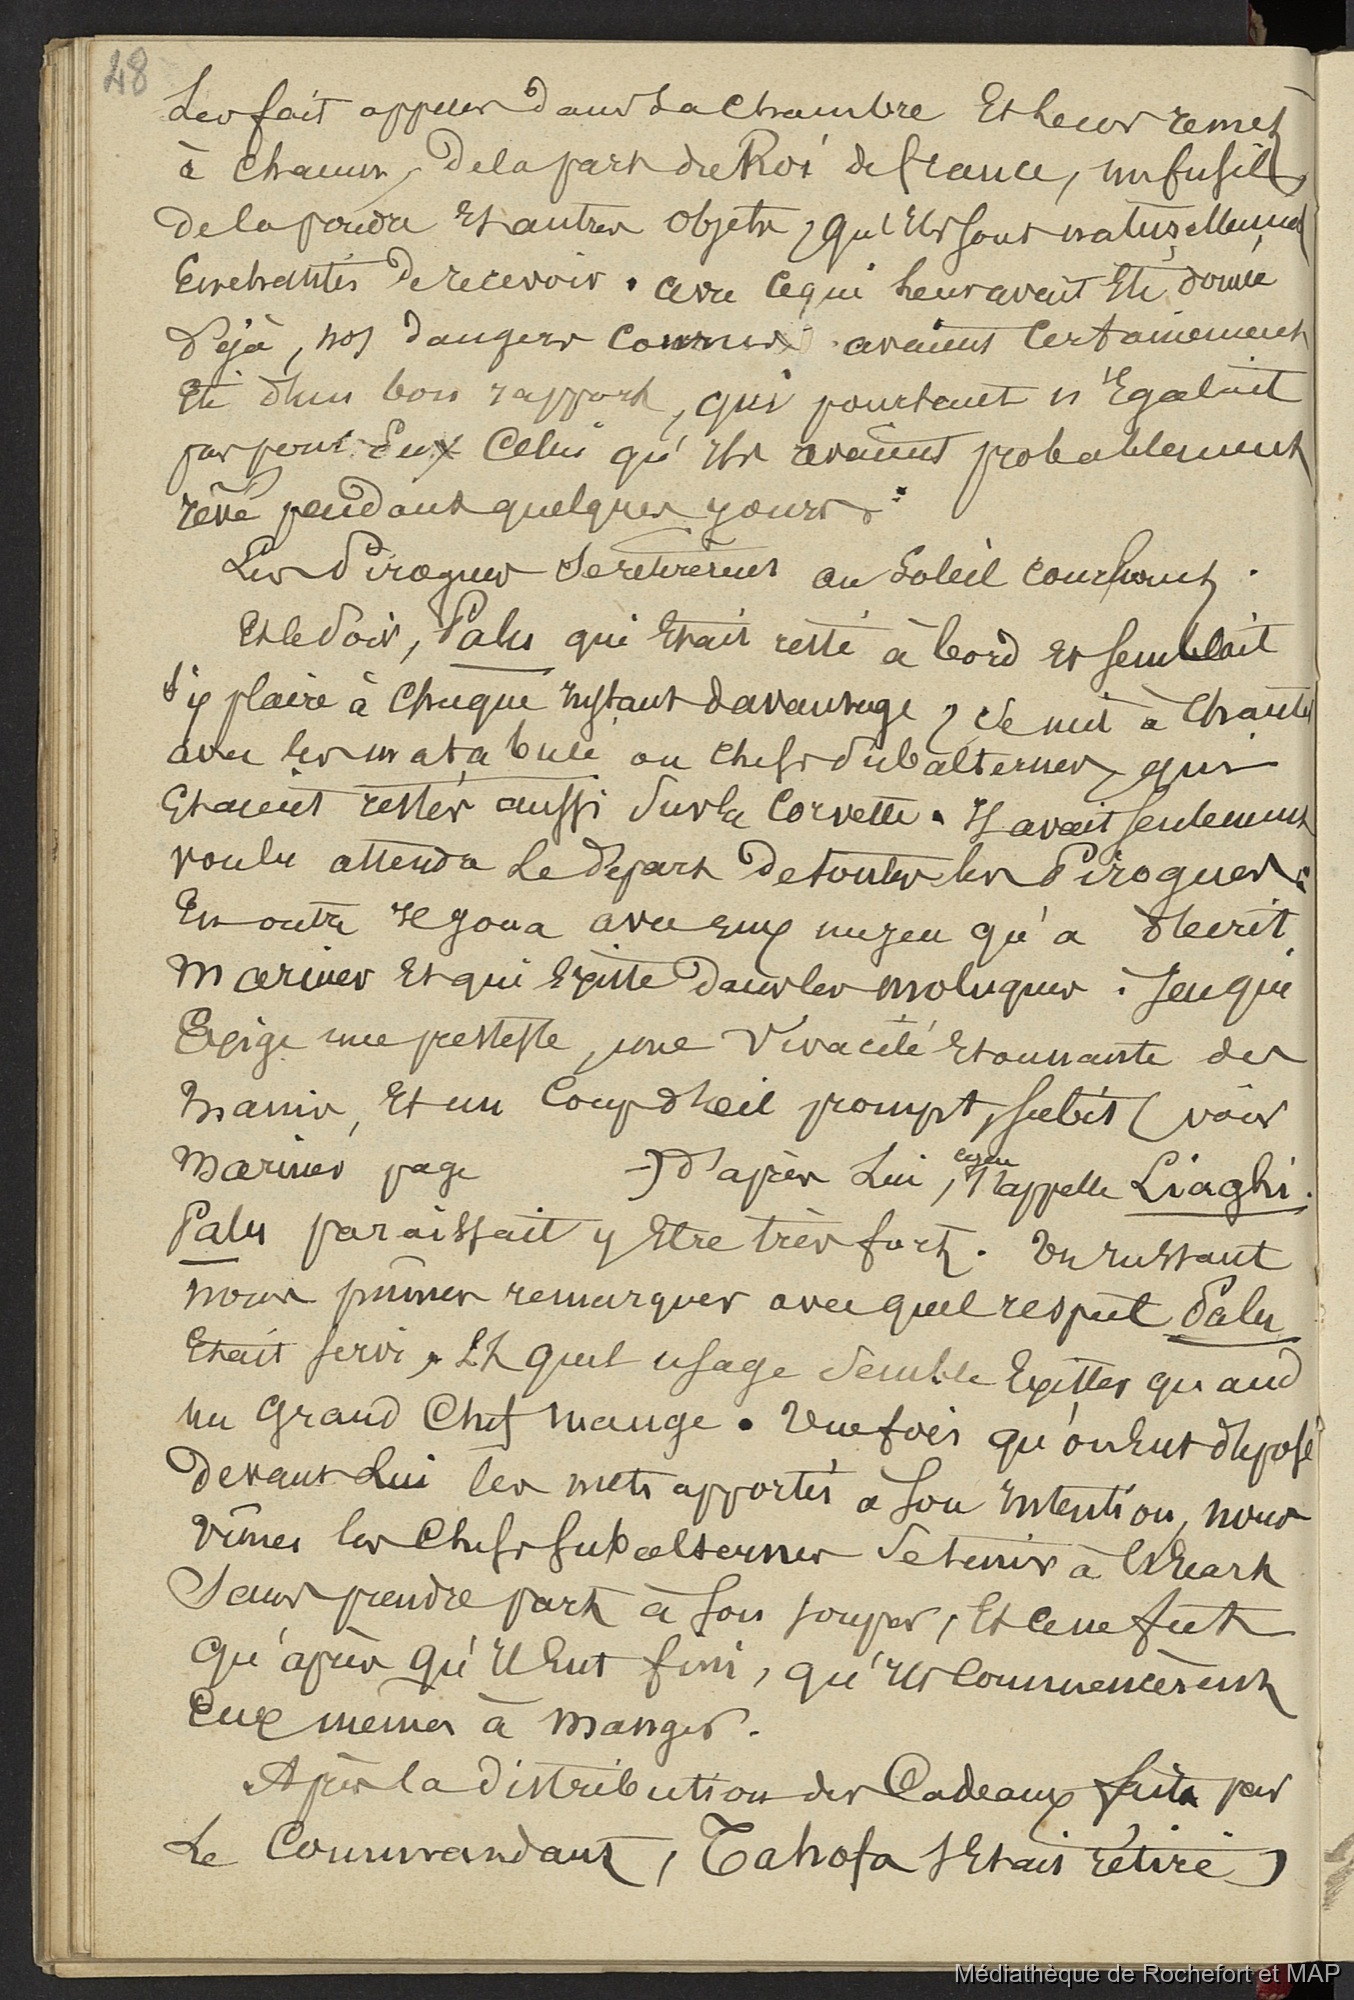 48
Les fait appeler dans sa chambre Et leur remet
à chacun, De la part du Roi de france, un fusil,
De la poudre Et autres objets, qu'Ils sont naturellement
Enchantés De recevoir. avec ce qui leur avait Eté donné
Déjà, nos dangers courrus avaient certainement
Eté d'un bon rapport, qui pourtant n'Egalait
pas pour Eux Celui qu'Ils avaient probablement
rêvé pendant quelques jours.
Les Pirogues se retirèrent au Soleil couchant.
Et le Soir, Palu qui Etait resté à bord Et semblait
s'y plaire à chaque Instant davantage, se mit à chanter
avec les matabulé ou chefs subalternes, qui
Etaient restés aussi Sur la Corvette. Il avait seulement
voulu attendre Le départ De toutes les Pirogues.
En outre Il joua avec eux un jeu qu'a décrit
Mariner Et qui Existe Dans les moluques. Jeu qui
Exige une prestesse, une Vivacité Etonnante des
mains, Et un Coup d'oeil prompt, subit (voir
Mariner page -) d'après Lui, ce jeu s'appelle Liaghi.
Palu paraissait y Etre très fort. Un Instant
nous pûmes remarquer avec quel respect Palu
Etait servi, Et quel usage Semble Exister quand
un Grand Chef mange. Une fois qu'on Eut déposé
Devant Lui les mets apportés à son Intention, nous
vîmes les Chefs subalternes Se tenir à l'Ecart
Sans prendre part à son souper, Et ce ne fut
qu'après qu'Il Eut fini, qu'Ils Commencèrent
Eux mêmes à manger.
Après la distribution des Cadeaux faite par
Le Commandant, Tahofa s'Etait retiré,
Médiathèque de Rochefort et MAP